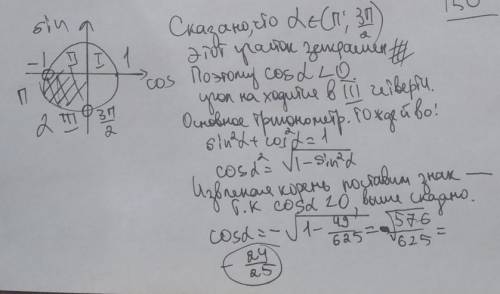 sin
-1 II I 1
cos
П
2 III 3П/2
150
Сказано, что α∈(П; 3П/2)
этот участок
Поэтому cosα∠0.
угол находится в III четверти.
Основное тригонометр. тождейво!
sin²α+cos²α=1
cosα²=√1-sin²α
Извлекая корень поставим знак —
Т.к cosα∠0, выше сказано.
cosα=-√1-49/625=-√576/625=
-24/25